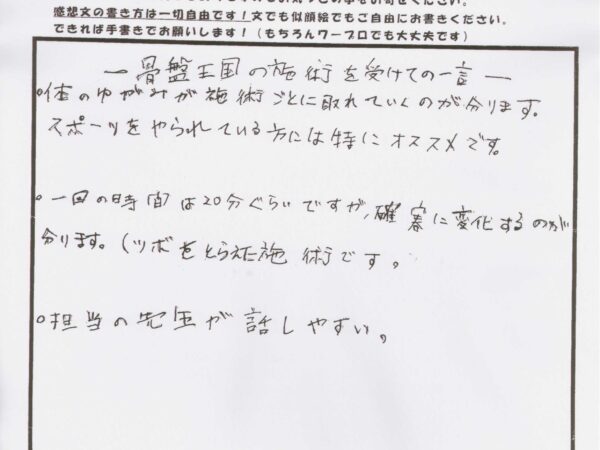 感想文の書き方は一切自由です！文でも似顔絵でもご自由にお書きください。
できれば手書きでお願いします！（もちろんワープロでも大丈夫です）
ー骨盤王国の施術を受けての一言ー
○体のゆがみが施術ごとに取れていくのが分ります。
スポーツをやられている方には特にオススメです。
○一回の時間は20分ぐらいですが、確実に変化するのが
分ります。（ツボをとらえた施術です。
○担当の先生が話しやすい。